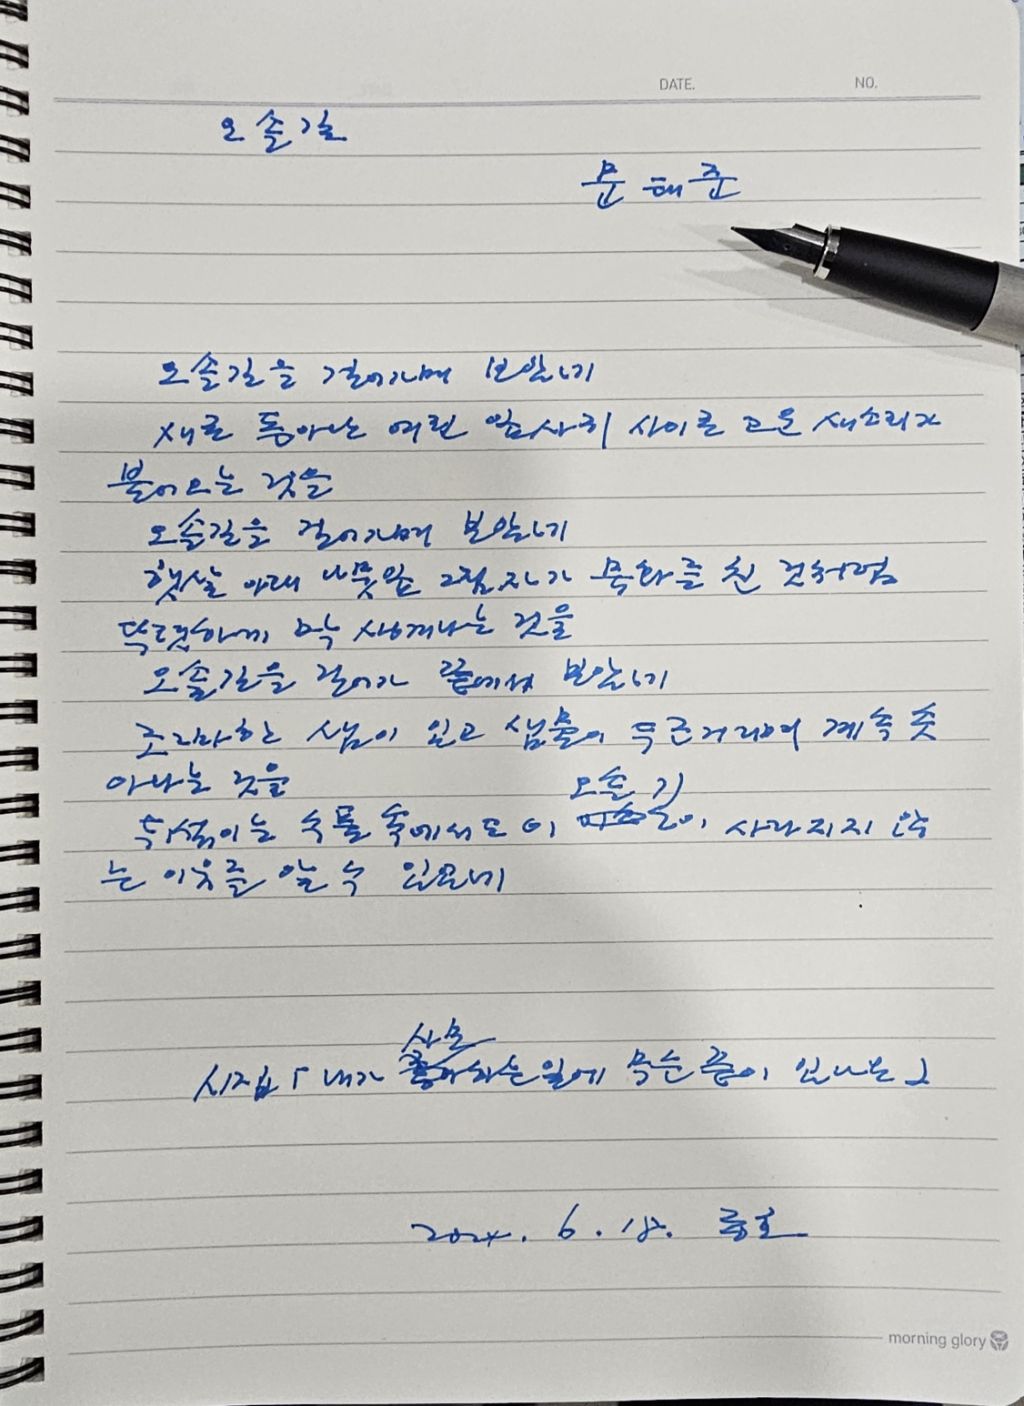 DATE. NO.
오솔길
문태준
오솔길을 걸어가며 보았네
새로 돋아난 여린 잎사귀 사이로 고운 새소리가
불어오는 것을
오솔길을 걸어가며 보았네
햇살 아래 나뭇잎 그림자가 묵화를 친 것처럼
뚜렷하게 막 생겨나는 것을
오솔길을 걸어가 끝에서 보았네
조그마한 샘이 있고 샘물이 두근거리며 계속 솟
아나는 것을
뒤섞이는 수풀 속에서도 이 오솔길이 사라지지 않
는 이유를 알 수 있었네
시집 「내가 사모하는 일에 무슨 끝이 있나요」
2024. 6. 18.
morning glory